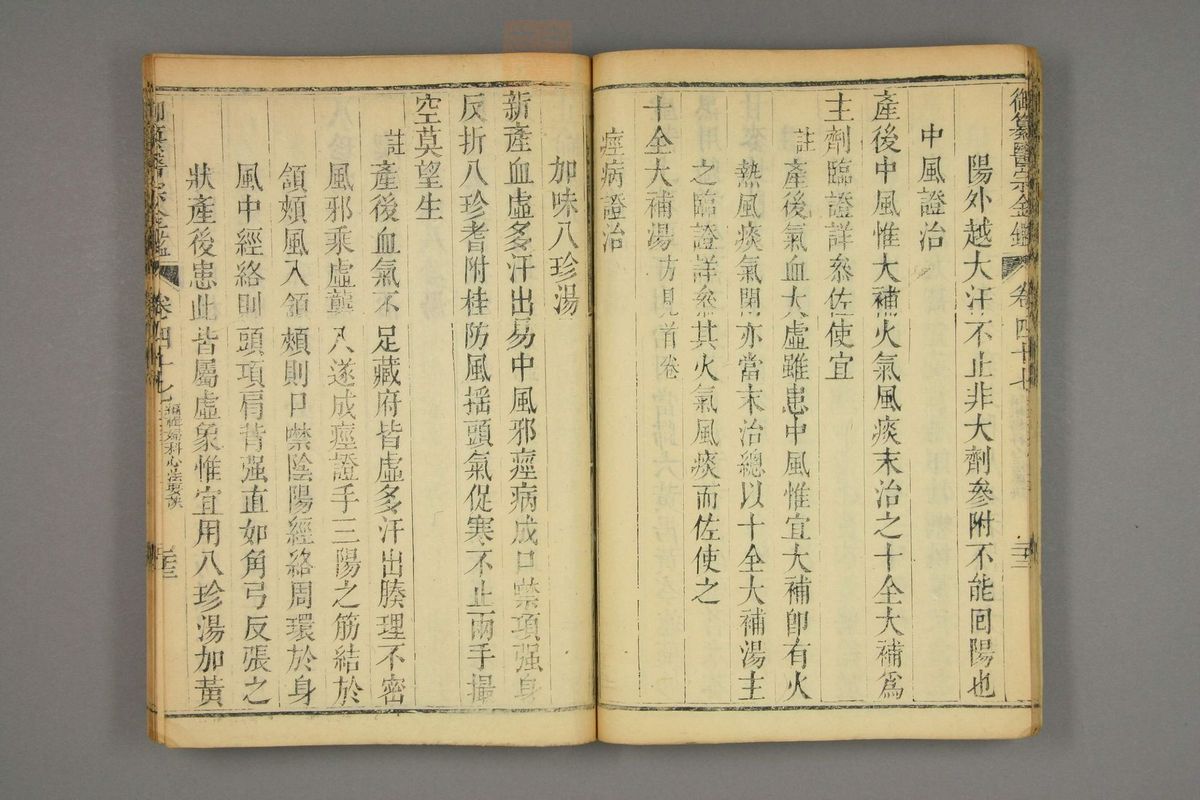 御纂醫宗金鑑 卷四十七
陽外越大汗不止非大劑參附不能回陽也
中風證治
產後中風惟大補火氣風痰末治之十全大補爲
主劑臨證詳叅佐使宜
註產後氣血大虛雖患中風惟宜大補卽有火
熱風痰氣閉亦當末治總以十全大補湯主
之臨證詳叅其火氣風痰而佐使之
十全大補湯方見首卷
痙病證治
加味八珍湯
新產血虛多汗出易中風邪痙病成口噤項强身
反折八珍耆附桂防風搖頭氣促寒不止兩手撮
空莫望生
註產後血氣不足藏府皆虛多汗出腠理不密
風邪乘虛襲入遂成痙證手三陽之筋結於
頷頰風入頷頰則口噤陰陽經絡周環於身
風中經絡則頭項肩背强直如角弓反張之
狀產後患此皆屬虛象惟宜用八珍湯加黃
御纂醫宗金鑑 卷四十七 編輯婦科心法要訣